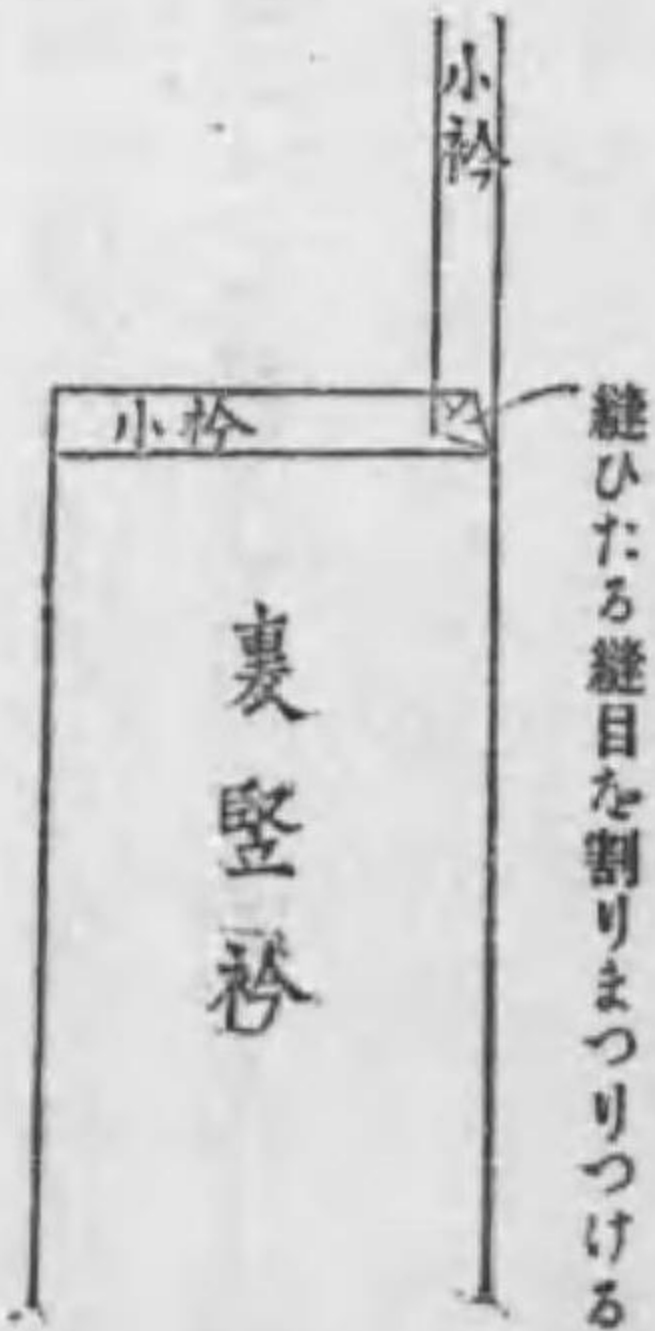 小衿
縫ひたる縫目を割りまつりつける
小衿
裏竪衿